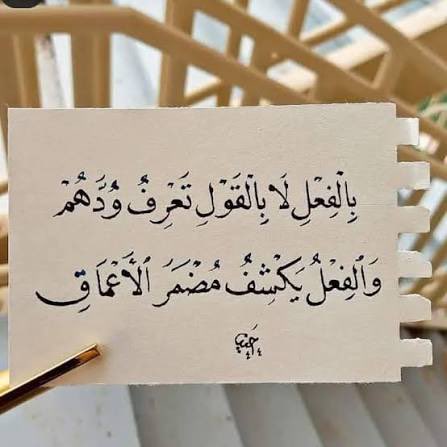 بِالْفِعْلِ لَا بِالْقَوْلِ تَعْرِفُ وُدَّهُمْ
وَالْفِعْلُ يَكْشِفُ مُضْمَرَ الْأَعْمَاقِ